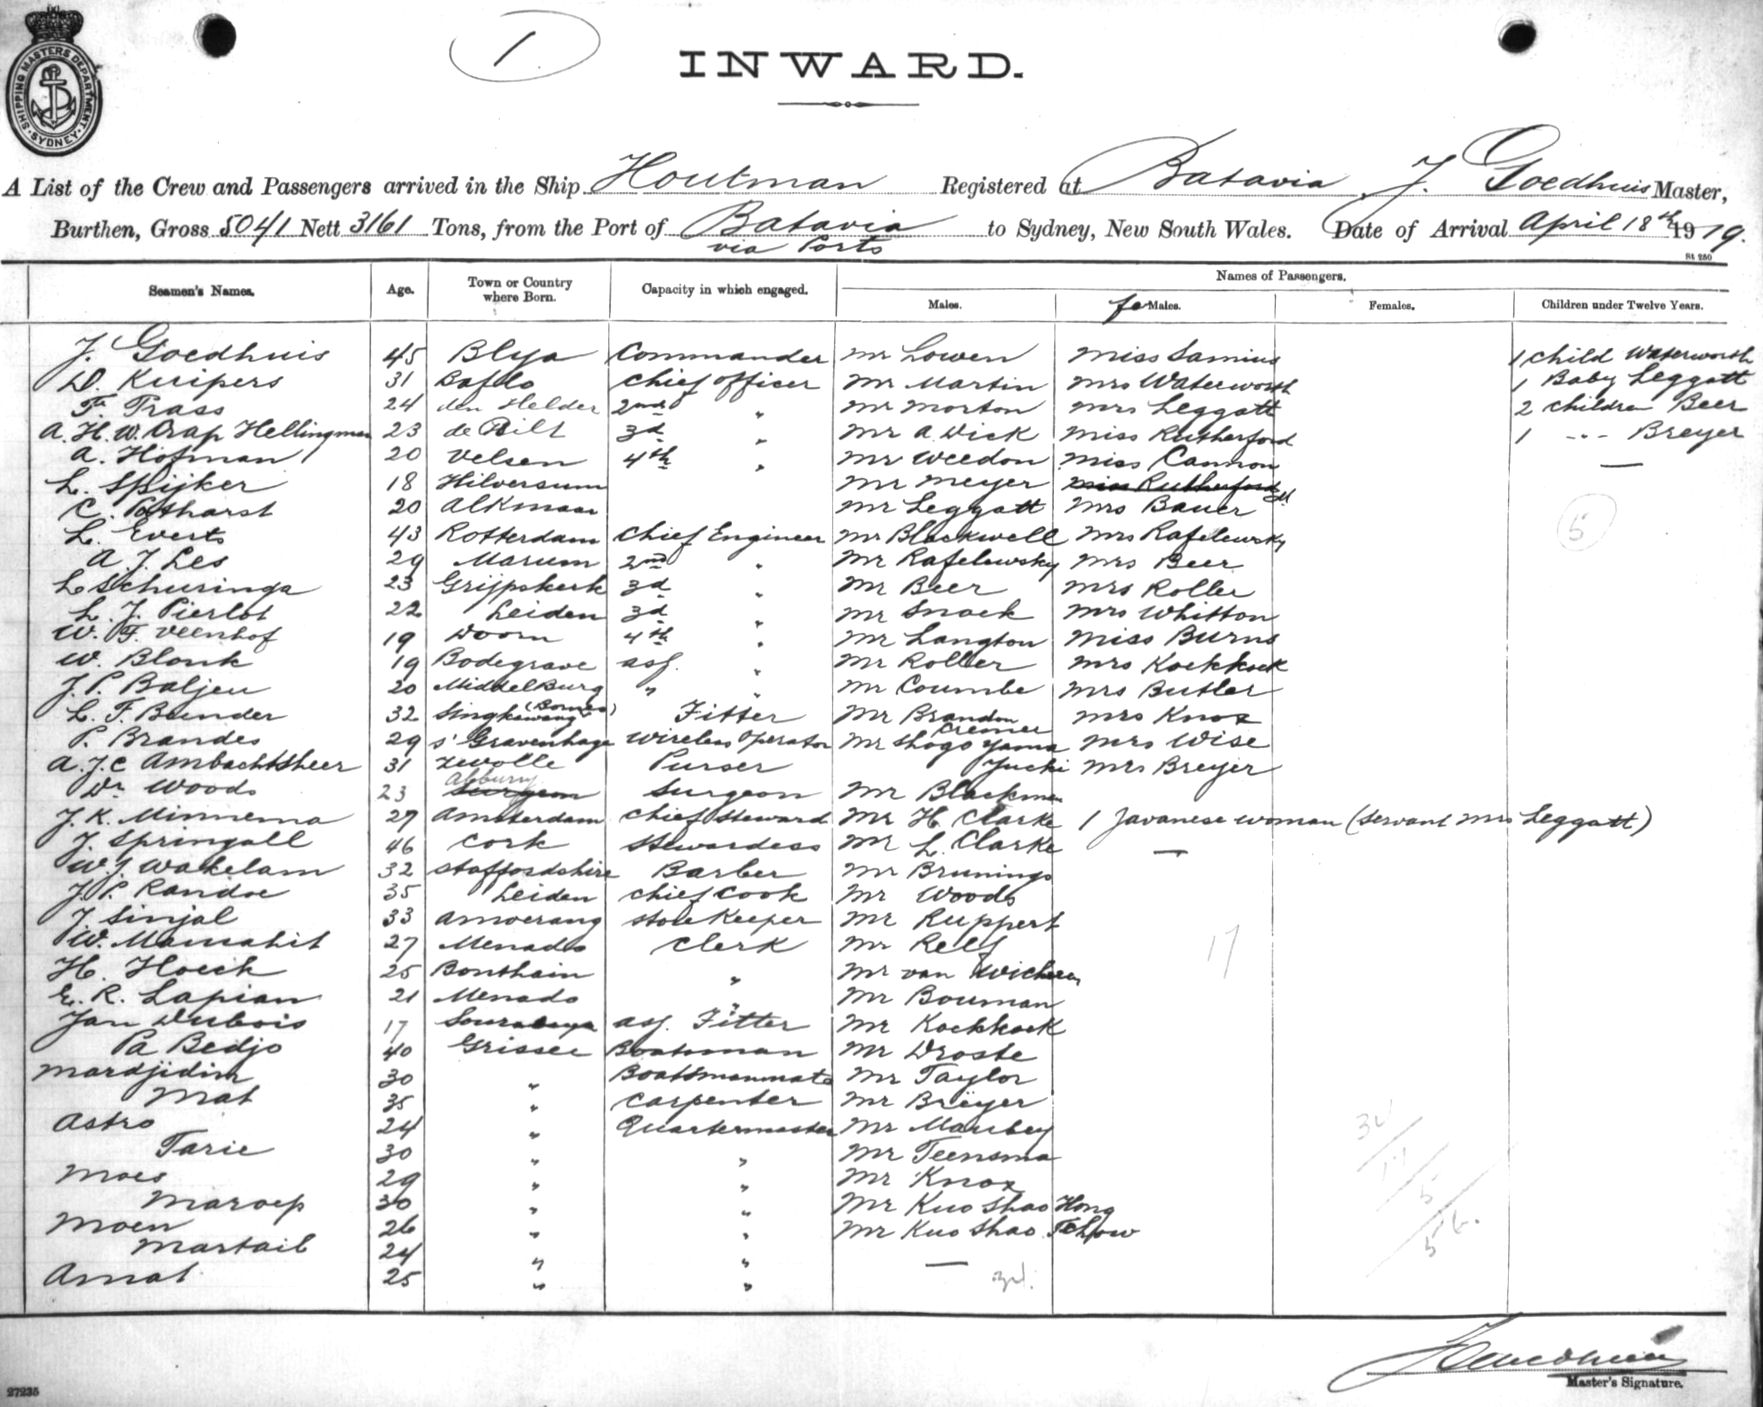 SHIPPING MASTERS DEPARTMENT
SYDNEY
1
INWARD.
A List of the Crew and Passengers arrived in the Ship Houtman Registered at Batavia J. Goedhuis Master,
Burthen, Gross 5041 Nett 3161 Tons, from the Port of Batavia to Sydney, New South Wales. Date of Arrival April 18th 1919.
via Ports
St 280
Names of Passengers.
Seamen's Names. Age. Town or Country where Born. Capacity in which engaged. Males. feMales. Females. Children under Twelve Years.
J. Goedhuis 45 Blya Commander Mr Lowen Miss Samius 1 Child Waterworth
D. Kuipers 31 Baflo Chief Officer Mr Martin Mrs Waterworth 1 Baby Leggatt
F. Prass 24 den Helder 2nd " Mr Morton Mrs Leggatt 2 Children Beer
A. H. W. Crap Hellingman 23 de Bilt 3d " Mr A. Dick Miss Rutherford 1 --- Breyer
A. Hofman 20 Velsen 4th " Mr Weedon Miss Cannon
L. Spijker 18 Hilversum Mr Meyer Miss Rutherford
C. Batharst 20 Alkmaar Mr Leggatt Mrs Bauer
L. Everts 43 Rotterdam Chief Engineer Mr Blackwell Mrs Rafelewsky 5
A. J. Les 29 Marum 2nd " Mr Rafelewsky Mrs Beer
L Schuringa 23 Grijpskerk 3d " Mr Beer Mrs Roller
L. J. Pierlot 22 Leiden 3d " Mr Snoek Mrs Whitton
W. F. Veenhof 19 Doorn 4th " Mr Langton Miss Burns
W. Blonk 19 Bodegrave ass. " Mr Roller Mrs Koekkoek
J. P. Baljeu 20 Middelburg " " Mr Coumbe Mrs Butler
L. F. Bender 32 Singkawang (Borneo) Fitter Mr Brandon Mrs Knox
Cremer
P. Brandes 29 s' Gravenhage Wireless Operator Mr Shogo Yama Mrs Wise
A. J. C Ambachtsheer 31 Zwolle Purser Yucki Mrs Breyer
Dr Woods 23 Surgeon Surgeon Mr Blackman
J. K. Minnema 27 Amsterdam Chief Steward Mr H. Clarke 1 Javanese woman (Servant Mrs Leggatt)
J. Springall 46 Cork Stewardess Mr L. Clarke
W. J. Wakelam 32 Staffordshire Barber Mr Brunings
J. P. Randoe 35 Leiden Chief Cook Mr Woods
J. Sinjal 33 Amoerang Storekeeper Mr Ruppert
W. Mamahit 27 Menado Clerk Mr Relf 17
H. Hoeck 25 Bonthain " Mr van Wicheren
E. R. Lapian 21 Menado " Mr Bouman
Jan Dubois 17 Sourabaya ass. Fitter Mr Koekkoek
Pa Bedjo 40 Grissee Boatsman Mr Droste
Mardjidin 30 " Boatsmanmate Mr Taylor
Mat 35 " Carpenter Mr Breyer
Astro 24 " Quartermaster Mr Maribey
Tarie 30 " " Mr Teensma
Moes 29 " " Mr Knox
Maroep 30 " " Mr Kuo Shao Hong
Moen 26 " " Mr Kuo Shao Tchow
Martail 24 " "
Amat 25 " "
34
17
5
56.
Master's Signature.
27235